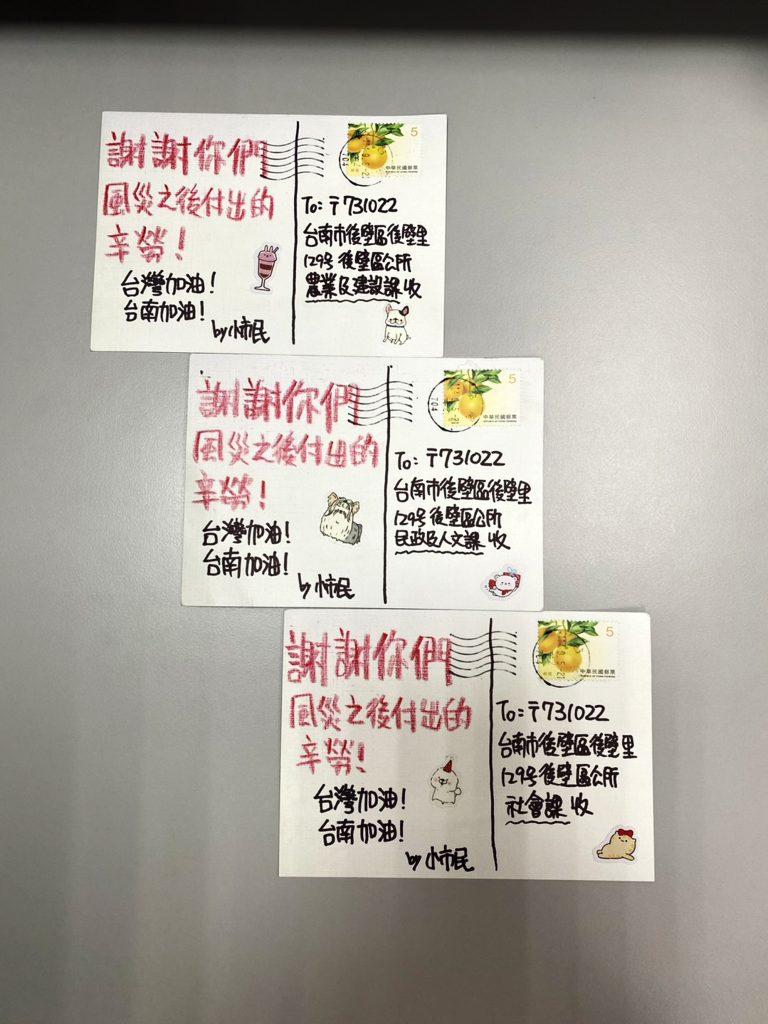 謝謝你們
風災之後付出的
辛勞！
台灣加油！
台南加油！
by 小市民
5
中華民國郵票
REPUBLIC OF CHINA (TAIWAN)
704
To: 〒731022
台南市後壁區後壁里
129号 後壁區公所
農業及建設課 收
謝謝你們
風災之後付出的
辛勞！
台灣加油！
台南加油！
by 小市民
5
中華民國郵票
REPUBLIC OF CHINA (TAIWAN)
704
To: 〒731022
台南市後壁區後壁里
129号 後壁區公所
民政及人文課 收
謝謝你們
風災之後付出的
辛勞！
台灣加油！
台南加油！
by 小市民
5
中華民國郵票
REPUBLIC OF CHINA (TAIWAN)
To: 〒731022
台南市後壁區後壁里
129号 後壁區公所
社會課 收